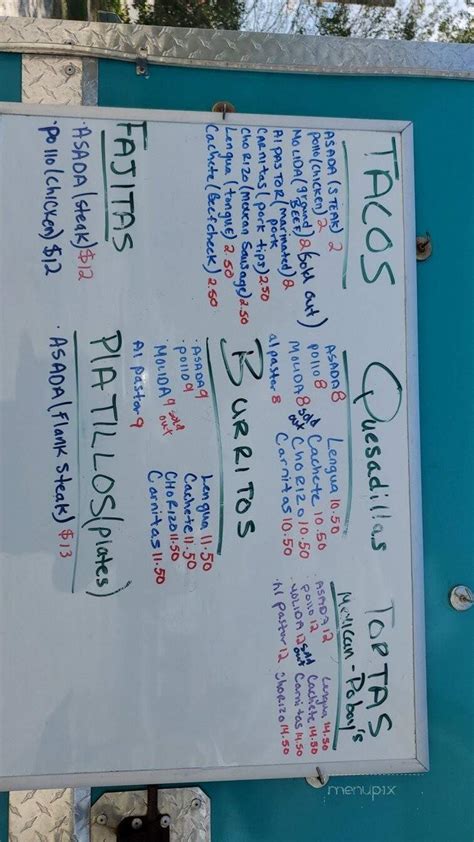 TACOS
ASADA (STEAK) 2
pollo (chicken) 2
MOLIDA (ground BEEF) 2 (Sold out)
Al PASTOR (marinated pork) 2
CARNITAS (pork tips) 2.50
CHORIZO (mexican sausage) 2.50
Lengua (tongue) 2.50
Cachete (Beef cheek) 2.50
FAJITAS
• ASADA (steak) $12
• pollo (chicken) $12
Quesadillas
ASADA 8
pollo 8
MOLIDA 8 sold out
al pastor 8
Lengua 10.50
Cachete 10.50
CHORIZO 10.50
Carnitas 10.50
BURRITOS
ASADA 9
pollo 9
MOLIDA 9 sold out
Al pastor 9
Lengua 11.50
Cachete 11.50
CHORIZO 11.50
Carnitas 11.50
PLATILLOS (plates)
• ASADA (flank steak) $13
TORTAS
Mexican - Poboy's
ASADA 12
pollo 12
MOLIDA 12 sold out
Al pastor 12
Lengua 14.50
Cachete 14.50
Carnitas 14.50
CHORIZO 14.50
menupix